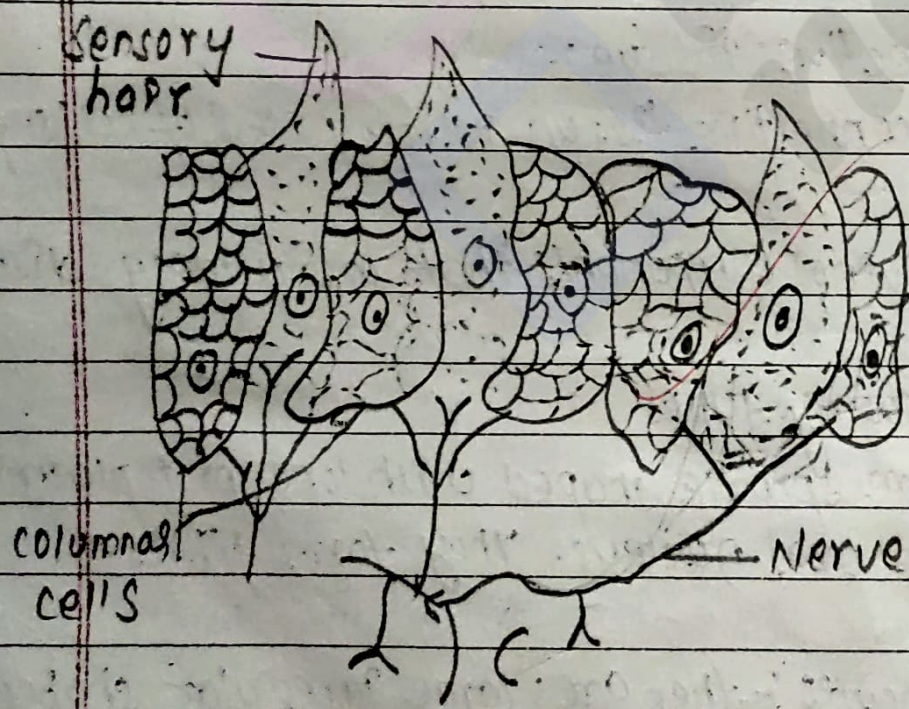 Sensory
hair
columnar
cells
Nerve